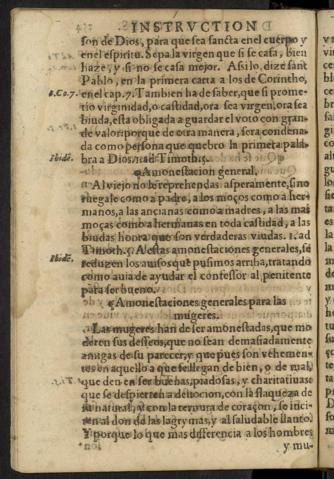 INSTRVCTION
son de Dios, para que sea sancta en el cuerpo y
en el espiritu. Sepa la virgen que si se casa, bien
haze, y si no se casa mejor. Asi lo dize sant
Pablo, en la primera carta a los de Corintho,
1.Co.7. en el cap. 7. Tambien ha de saber, que si prome-
tio virginidad, o castidad, ora sea virgen, ora sea
biuda, esta obligada a guardar el voto con gran-
de valor: porque de otra manera, sera condena-
da como persona que quebro la primera pala-
Ibidē. bra a Dios. 1. ad Timoth. 5.
¶ Amonestacion general.
Al viejo no le reprehendas asperamente, sino
ruegale como a padre, a los moços como a her-
manos, a las ancianas como a madres, a las mas
moças como a hermanas en toda castidad, a las
biudas honra que son verdaderas viudas. 1. ad
Timoth. 5. A estas amonestaciones generales, se
Ibidē. reduzen los auisos que pusimos arriba, tratando
como auia de ayudar el confessor al penitente
para ser bueno.
¶ Amonestaciones generales para las
mugeres.
Las mugeres han de ser amonestadas, que mo
deren sus desseos, que no sean demasiadamente
amigas de su parecer, y que pues son vehemen-
tes en aquello a que se llegan de bien, o de mal,
que den en ser buenas, piadosas, y charitatiuas:
que se despierten a deuocion, con la flaqueza de
su natural, y con la ternura de coraçon, se inci-
ten al don de las lagrymas, y al saludable llanto.
Y porque lo que mas differencia a los hombres
y mu-